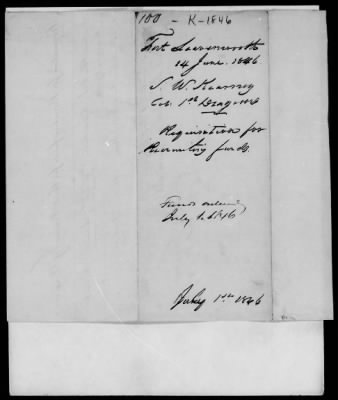 100 - K-1846
Fort Leavenworth
14 June. 1846
S. W. Kearney
Col. 1st Dragoons
Requisition for
Recruiting funds.
Funds ordered
July 1. 1846
July 1st 1846